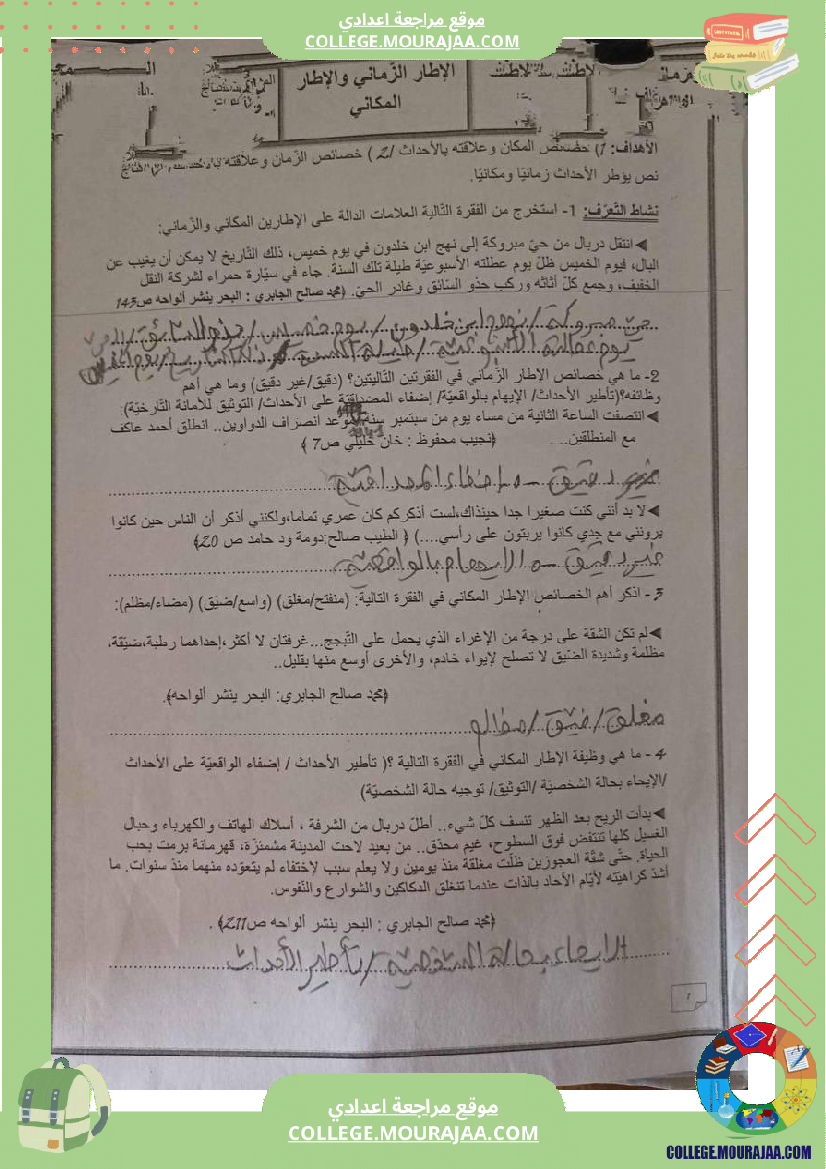 موقع مراجعة اعدادي
COLLEGE.MOURAJAA.COM
الإطار الزّماني والإطار
المكاني
الأهداف: 1) خصائص المكان وعلاقته بالأحداث /2) خصائص الزّمان وعلاقته
نص يؤطر الأحداث زمانيّا ومكانيّا.
نشاط التّعرّف: 1- استخرج من الفقرة التّالية العلامات الدالة على الإطارين المكاني والزّماني:
◄انتقل دربال من حيّ مبروكة إلى نهج ابن خلدون في يوم خميس، ذلك التّاريخ لا يمكن أن يغيب عن
البال، فيوم الخميس ظلّ يوم عطلته الأسبوعيّة طيلة تلك السنة. جاء في سيّارة حمراء لشركة النقل
الخفيف، وجمع كلّ أثاثه وركب حذو السّائق وغادر الحيّ. (محمد صالح الجابري : البحر ينشر ألواحه ص145
حيّ مبروكة / نهج ابن خلدون / يوم خميس / حذو السّائق /
يوم عطلته الأسبوعيّة / طيلة تلك السنة
2- ما هي خصائص الإطار الزّماني في الفقرتين التّاليتين؟ (دقيق/غير دقيق) وما هي أهم
وظائفه؟(تأطير الأحداث/ الإيهام بالواقعيّة/ إضفاء المصداقيّة على الأحداث/ التوثيق للأمانة التّارخيّة):
◄انتصفت الساعة الثانية من مساء يوم من سبتمبر سنة موعد انصراف الدواوين.. انطلق أحمد عاكف
مع المنطلقين.. (نجيب محفوظ : خان خليلي ص7 )
دقيق → إضفاء المصداقيّة
◄لا بد أنني كنت صغيرا جدا حينذاك،لست أذكركم كان عمري تماما،ولكنني أذكر أن الناس حين كانوا
يرونني مع جدي كانوا يربتون على رأسي....) ( الطيب صالح:دومة ود حامد ص 20)
غير دقيق → الإيهام بالواقعيّة
3 - اذكر أهم الخصائص الإطار المكاني في الفقرة التالية: (منفتح/مغلق) (واسع/ضيّق) (مضاء/مظلم):
◄لم تكن الشقة على درجة من الإغراء الذي يحمل على التّبجح...غرفتان لا أكثر،إحداهما رطبة،ضيّقة،
مظلمة وشديدة الضّيق لا تصلح لإيواء خادم، والأخرى أوسع منها بقليل..
(محمد صالح الجابري: البحر ينشر ألواحه).
مغلق / ضيّق / مظلم
4 - ما هي وظيفة الإطار المكاني في الفقرة التالية ؟( تأطير الأحداث / إضفاء الواقعيّة على الأحداث
/الإيحاء بحالة الشخصيّة /التوثيق/ توجيه حالة الشخصيّة)
◄بدأت الريح بعد الظهر تنسف كلّ شيء.. أطلّ دربال من الشرفة ، أسلاك الهاتف والكهرباء وحبال
الغسيل كلها تنتفض فوق السطوح، غيم محدّق.. من بعيد لاحت المدينة مشمئزّة، قهرمانة برمت بحب
الحياة. حتّى شقّة العجوزين ظلّت مغلقة منذ يومين ولا يعلم سبب لاختفاء لم يتعوّده منهما منذ سنوات. ما
أشدّ كراهيّته لأيّام الآحاد بالذات عندما تنغلق الدكاكين والشوارع والنّفوس.
(محمد صالح الجابري : البحر ينشر ألواحه ص211) .
الإيحاء بحالة الشخصيّة / تأطير الأحداث
1
موقع مراجعة اعدادي
COLLEGE.MOURAJAA.COM
COLLEGE.MOURAJAA.COM